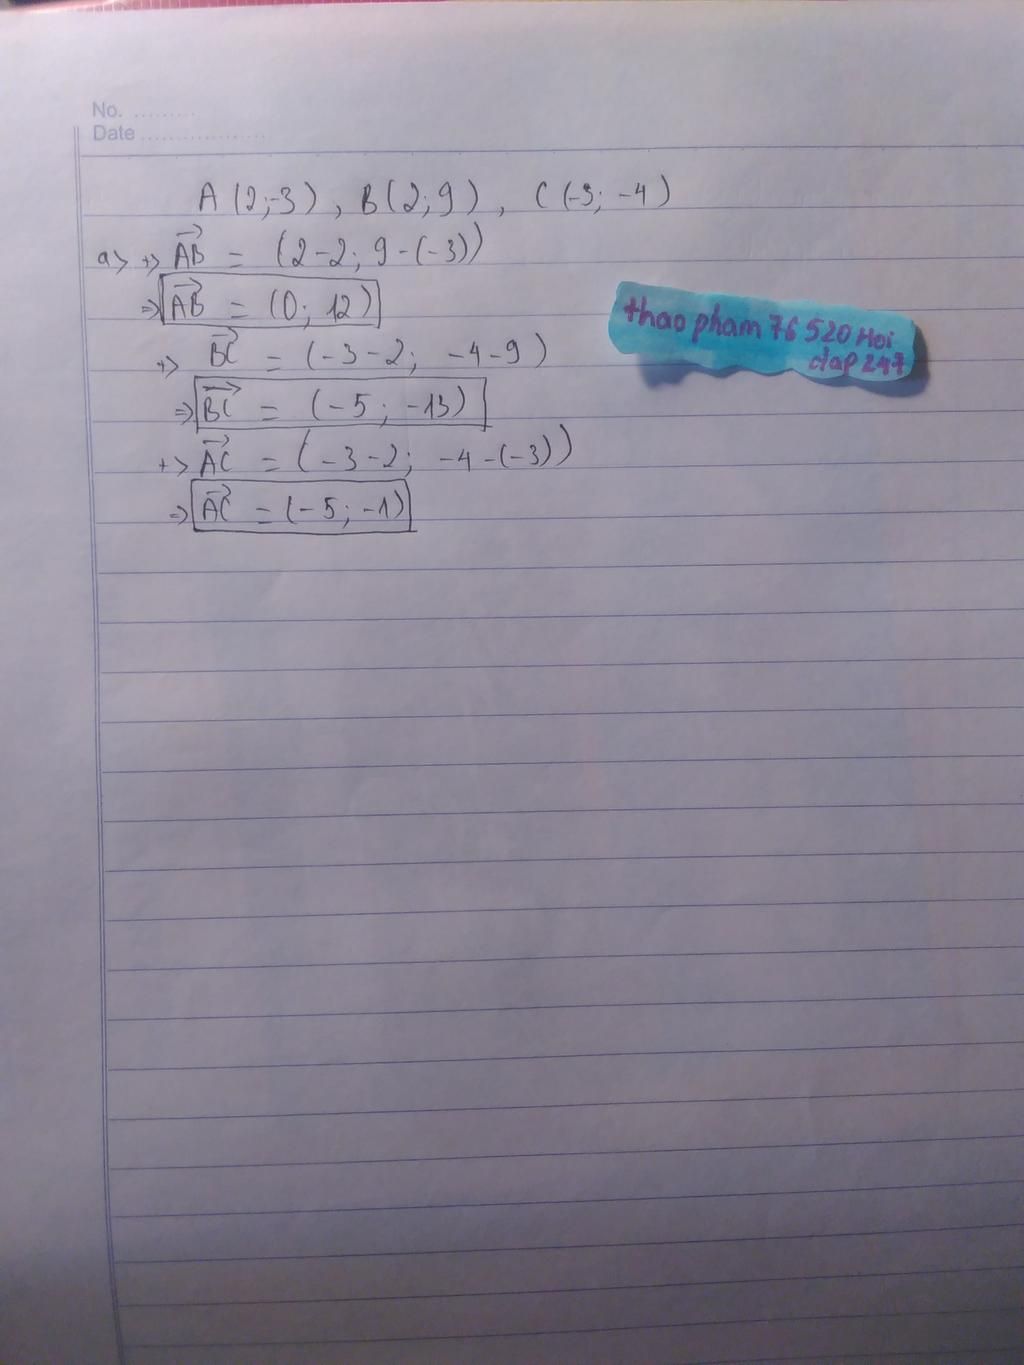 No. ..........
Date ...................
A (2;-3) , B (2;9) , C (-3; -4)
a> +> \overrightarrow{AB} = (2-2; 9-(-3))
=> \overrightarrow{AB} = (0; 12)
+> \overrightarrow{BC} = (-3-2; -4-9)
=> \overrightarrow{BC} = (-5; -13)
+> \overrightarrow{AC} = (-3-2; -4-(-3))
=> \overrightarrow{AC} = (-5; -1)
thao pham 76 520 Hoi
dap 247